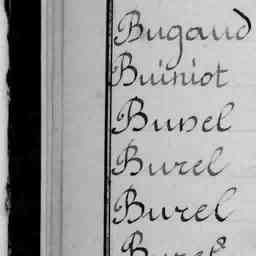 Bugaud
Buiniot
Bunel
Burel
Burel